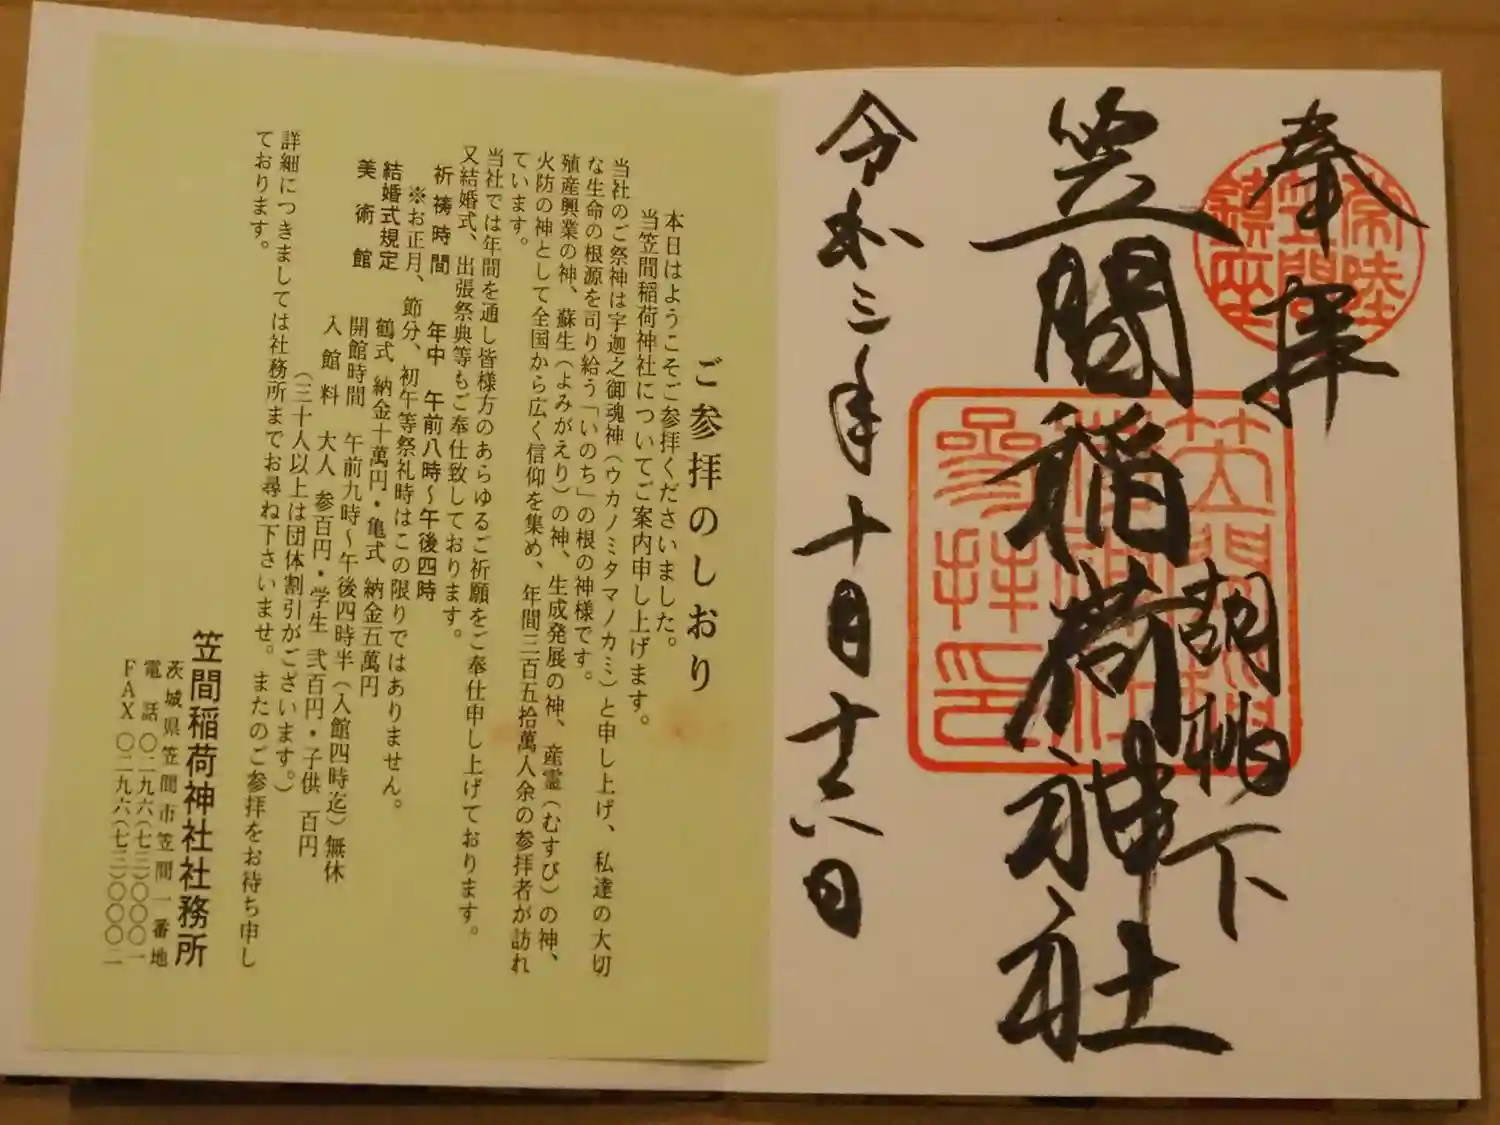 奉拝
常陸
笠間
鎮座
胡桃下
笠間稲荷神社
笠間
参拝印
令和三年十月十六日
ご参拝のしおり
本日はようこそご参拝くださいました。
当笠間稲荷神社についてご案内申し上げます。
当社のご祭神は宇迦之御魂神（ウカノミタマノカミ）と申し上げ、私達の大切
な生命の根源を司り給う「いのち」の根の神様です。
殖産興業の神、蘇生（よみがえり）の神、生成発展の神、産霊（むすび）の神、
火防の神として全国から広く信仰を集め、年間三百五拾萬人余の参拝者が訪れ
ています。
当社では年間を通し皆様方のあらゆるご祈願をご奉仕申し上げております。
又結婚式、出張祭典等もご奉仕致しております。
祈祷時間 年中 午前八時～午後四時
※お正月、節分、初午等祭礼時はこの限りではありません。
結婚式規定 鶴式 納金十萬円・亀式 納金五萬円
美術館 開館時間 午前九時～午後四時半（入館四時迄）無休
入館料 大人 参百円・学生 弐百円・子供 百円
（三十人以上は団体割引がございます。）
詳細につきましては社務所までお尋ね下さいませ。またのご参拝をお待ち申し
ております。
笠間稲荷神社社務所
茨城県笠間市笠間一番地
電話 〇二九六（七三）〇〇〇一
FAX 〇二九六（七三）〇〇〇二